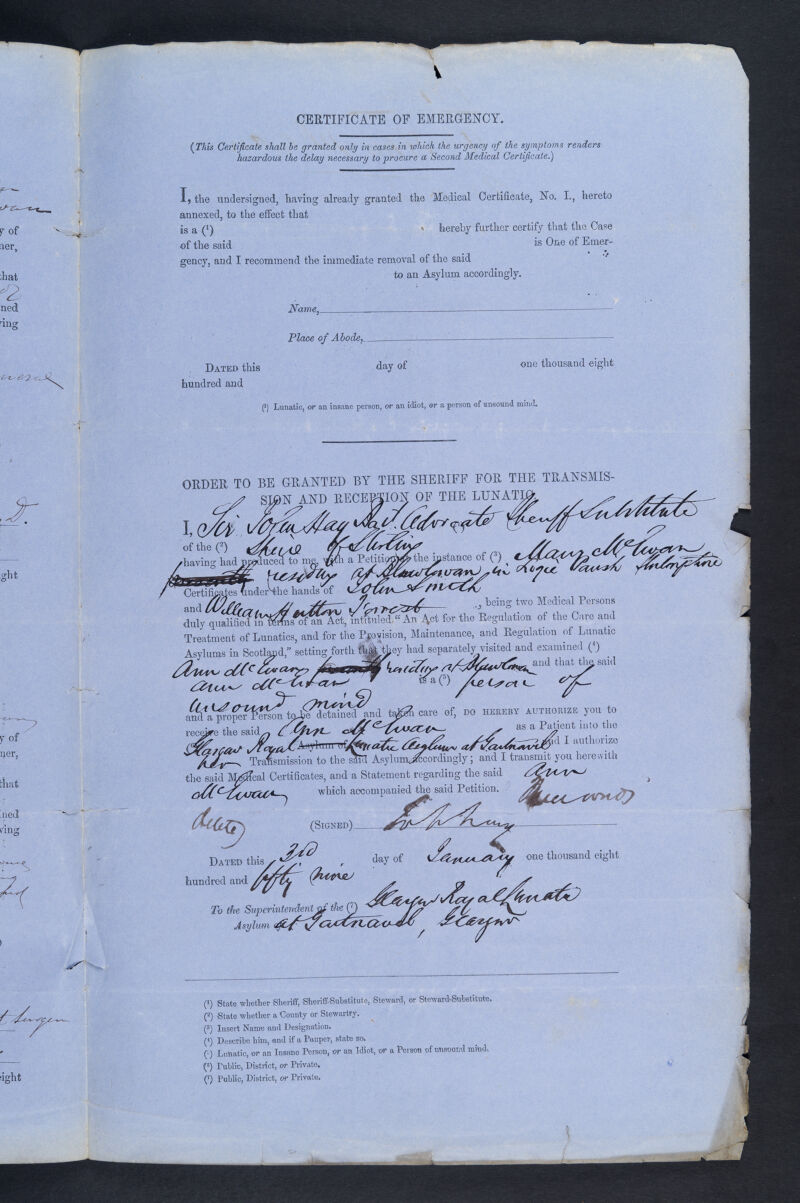 CERTIFICATE OF EMERGENCY.
(This Certificate shall be granted only in cases in which the urgency of the symptoms renders
hazardous the delay necessary to procure a Second Medical Certificate.)
I, the undersigned, having already granted the Medical Certificate, No. I., hereto
annexed, to the effect that
is a (¹) hereby further certify that the Case
of the said is One of Emer-
gency, and I recommend the immediate removal of the said
to an Asylum accordingly.
Name,
Place of Abode,
DATED this day of one thousand eight
hundred and
(¹) Lunatic, or an insane person, or an idiot, or a person of unsound mind.
ORDER TO BE GRANTED BY THE SHERIFF FOR THE TRANSMIS-
SION AND RECEPTION OF THE LUNATIC.
I, Sir John Hay Bat. Advocate Sheriff Substitute
of the (²) Shire of Stirling
having had produced to me, with a Petition at the instance of (³) Mary McEwan
residing at in Logie Parish Stirlingshire
Certificates under the hands of John Smith
and William Hutton Forrest, being two Medical Persons
duly qualified in terms of an Act, intituled "An Act for the Regulation of the Care and
Treatment of Lunatics, and for the Provision, Maintenance, and Regulation of Lunatic
Asylums in Scotland," setting forth that they had separately visited and examined (⁴)
Ann McEwan residing at and that the said
Ann McEwan is a (⁵) person of
unsound mind
and a proper Person to be detained and taken care of, DO HEREBY AUTHORIZE you to
receive the said Ann McEwan as a Patient into the
Glasgow Royal Asylum of Lunatic Asylum at Gartnavel and I authorize
her Transmission to the said Asylum accordingly; and I transmit you herewith
the said Medical Certificates, and a Statement regarding the said Ann
McEwan which accompanied the said Petition. words
delete
(SIGNED)
DATED this 3rd day of January one thousand eight
hundred and fifty nine
To the Superintendent of the (⁷) Glasgow Royal Lunatic
Asylum at Gartnavel, Glasgow
(¹) State whether Sheriff, Sheriff-Substitute, Steward, or Steward-Substitute.
(²) State whether a County or Stewartry.
(³) Insert Name and Designation.
(⁴) Describe him, and if a Pauper, state so.
(⁵) Lunatic, or an Insane Person, or an Idiot, or a Person of unsound mind.
(⁶) Public, District, or Private.
(⁷) Public, District, or Private.